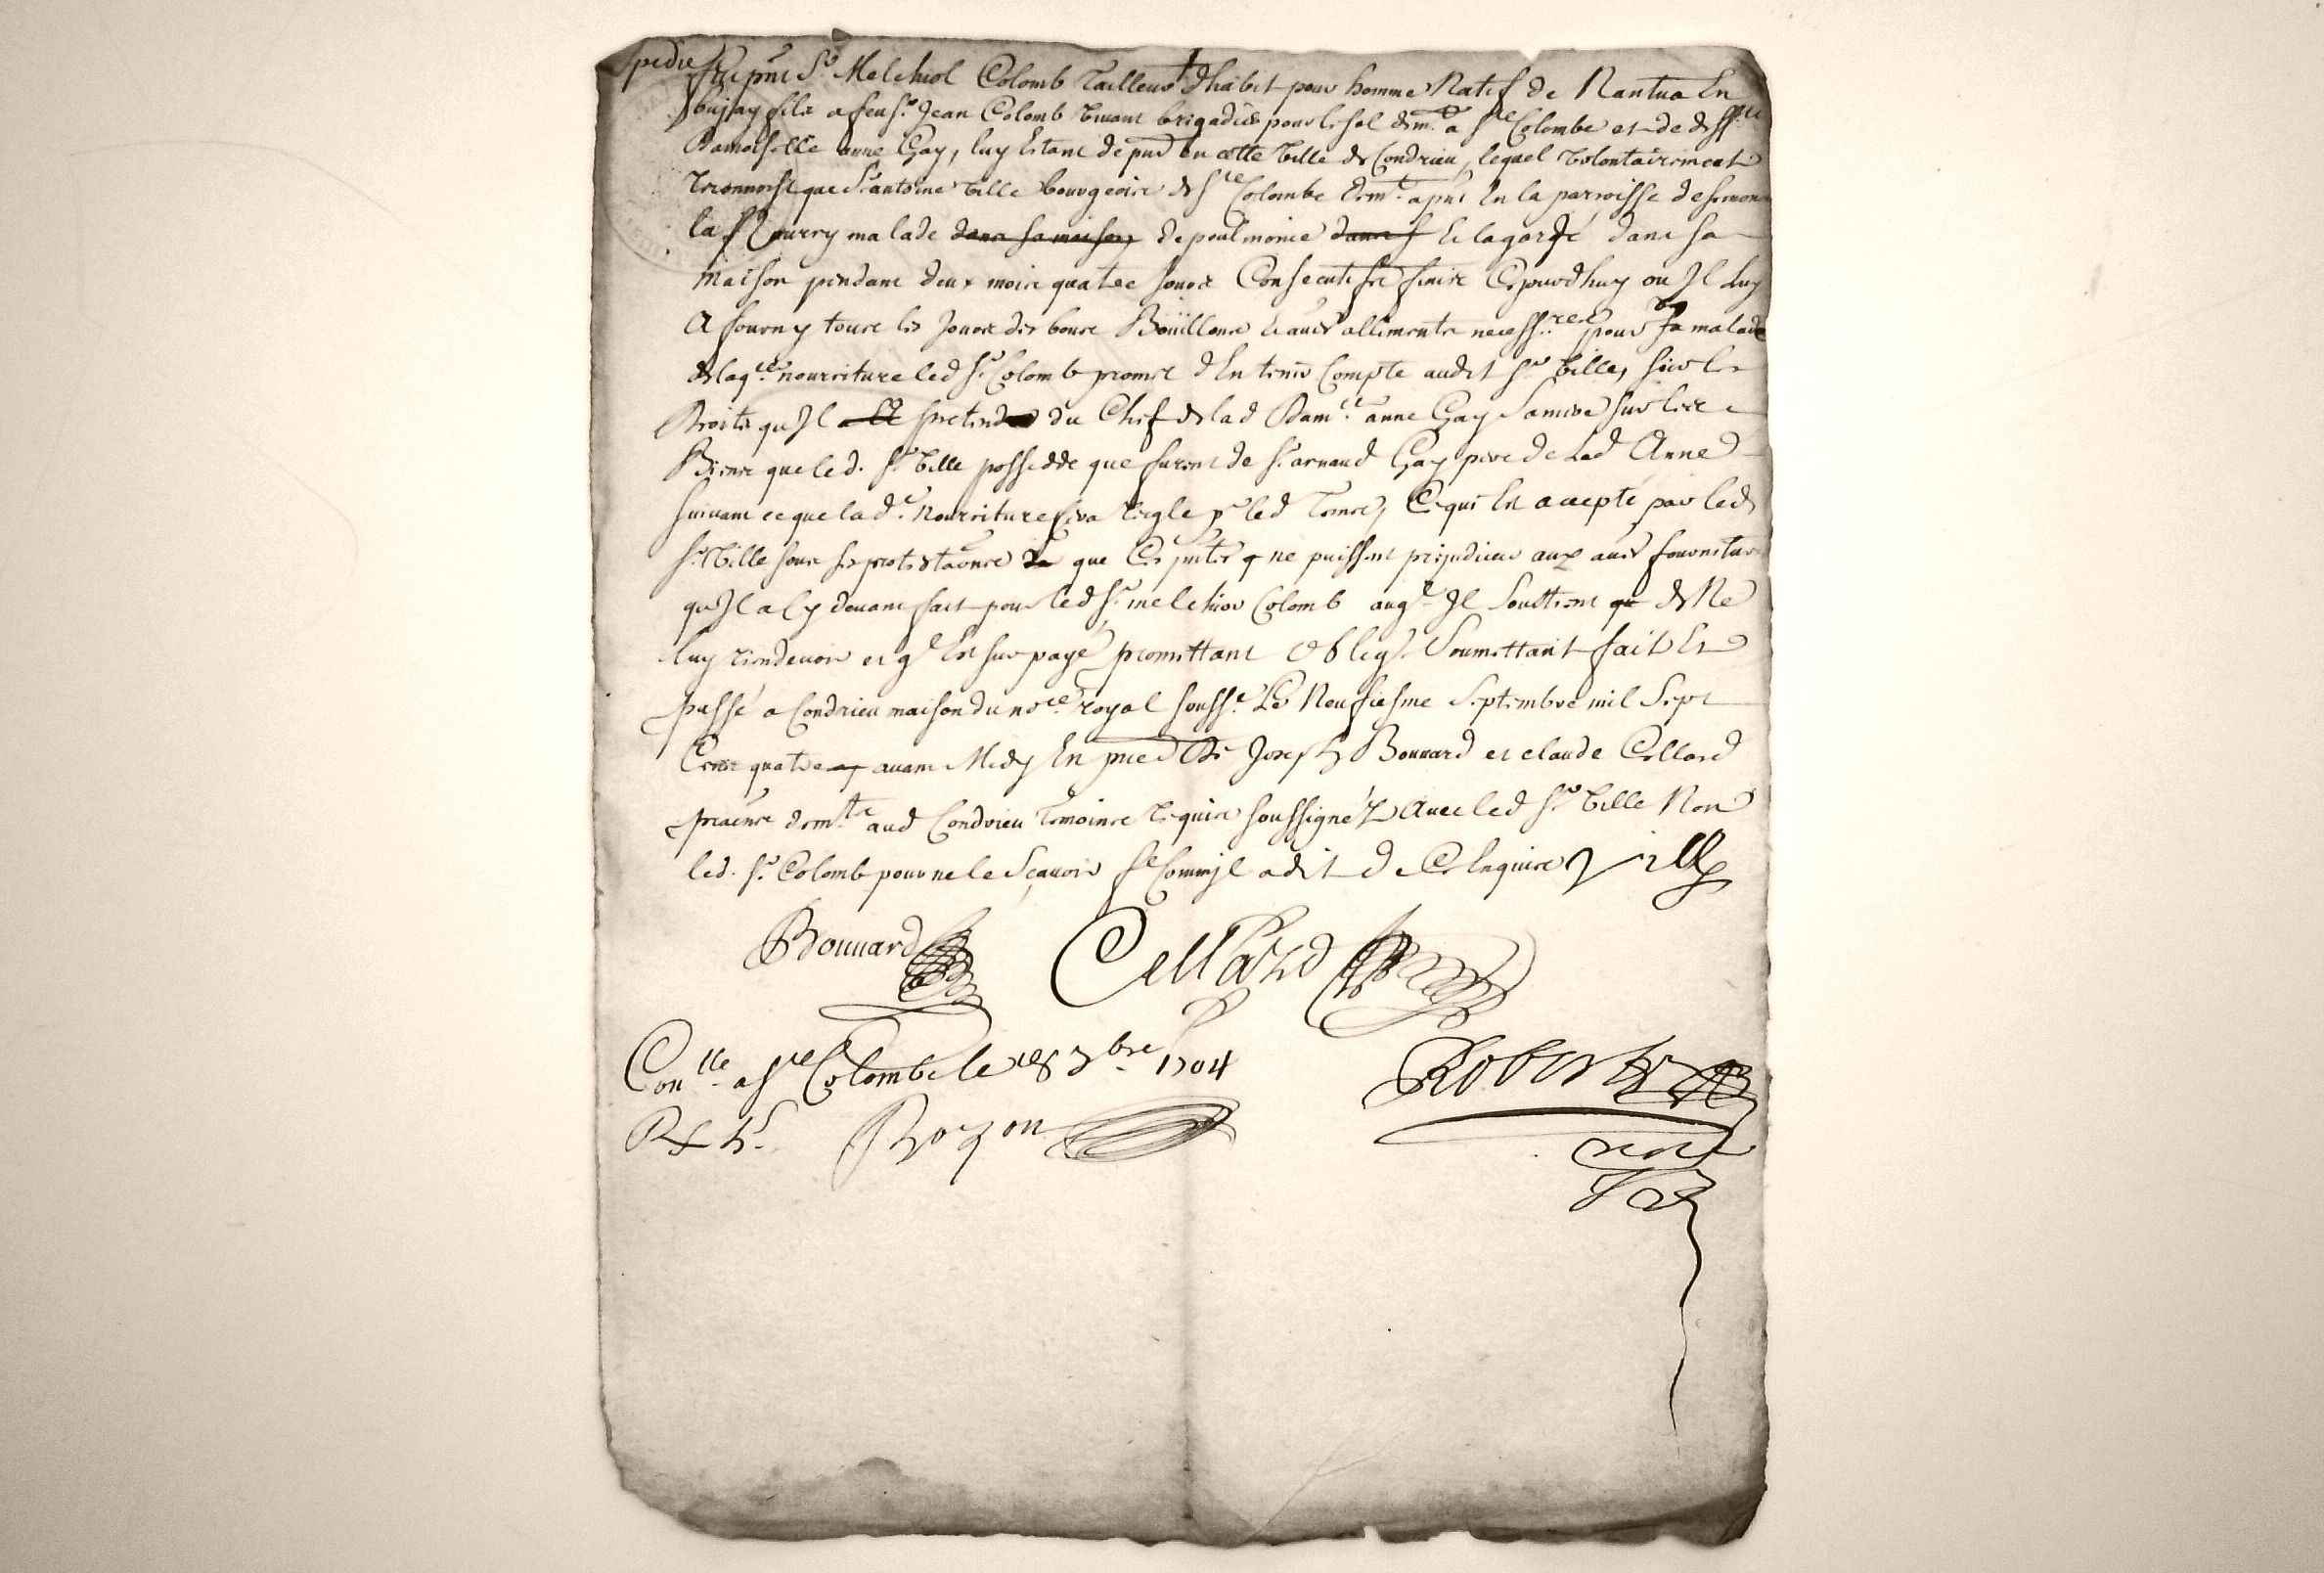 Spedié
Fut pnt Sr. Melchiol Colomb Tailleur d'habit pour homme Natif de Nantua En
bujay fils a feu Sr. Jean Colomb vivant brigadier pour le sel demt. a Ste Colombe et de deffte
Damoiselle anne Gay, luy Estant de pnt en cette ville de Condrieu, lequel volontairement
reconnoist que Sr antoine ville bourgeois de Ste Colombe demt. a pnt En la parroisse de
la Nourry malade dans sa maison de poulmonie dans s Et la gardé dans sa
maison pendant deux mois quatre jours Consecutifs finis Cejourdhuy ou Jl luy
A fourny tous les Jours des bons Boüillons Et aues alliments necessres pour sa malade
de laqlle nourriture led Sr. Colomb promet d'En tenir Compte audit Sr ville, sur les
Droits qu'Jl pretend du Chef de lad Damlle anne Gay Sa mere sur les
Biens que led. Sr ville possedde que furent de Sr arnaud Gay pere de lad Anne
suivant ce que lad. Nourriture sera reglé pr led Ce qui Est accepté par led
Sr. Ville sous ses protestaons que Ces puissent prejudicier aux aues fournitures
qu'Jl a Cy devant fait pour led Sr. melchior Colomb auql Jl Soustient de Ne
luy rien devoir et ql Est surpayé promettant Oblig. Soumettant fait Et
passé a Condrieu maison du nore royal soussé. Le Neufiesme Septembre mil Sept
Cens quatre avant Midy En pnce de Joseph Bonnard et claude Cellard
demts aud Condrieu Temoins requis soussignéz Avec led Sr ville Non
led. Sr. Colomb pour ne le Sçavoir Comme Jl a dit de Ce Enquis Ville
Bonnard Cellard
Conlle a Ste Colombe le 7bre 1704
Robert
Rx Rozon
nore